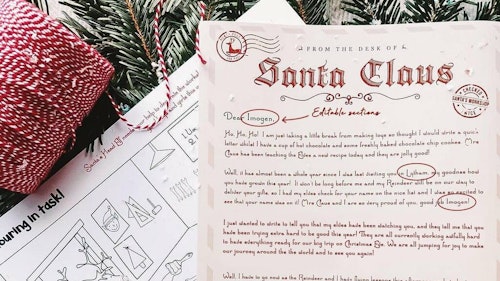 FROM THE DESK OF
Santa Claus
CHECKED
SANTA'S WORKSHOP
Editable sections
Dear Imogen,
Ho, Ho, Ho! I am just taking a little break from making toys so thought I would write a quick
letter whilst I have a cup of hot chocolate and some freshly baked chocolate chip cookies. Mrs
Claus has been teaching the Elves a new recipe today and they are jolly good!
Well, it has almost been a whole year since I was last visiting you in Lytham, my goodness how
you have grown this year! It won't be long before me and my Reindeer will be on our way to
deliver your gifts as I had my elves check for your name on the nice list and I was so excited to
see that your name was on it! Mrs Claus and I are so very proud of you, good job Imogen!
I just wanted to write to you that my elves have been watching you, and they tell me that you
had been trying extra hard to be good this year! They are all currently working awfully hard
to have everything ready for our big trip on Christmas Eve. We are all jumping for joy to make
our journey around the the world and to see you again!
Well, I have to go now as the Reindeer and I have flying lessons this afternoon
ouring in task!